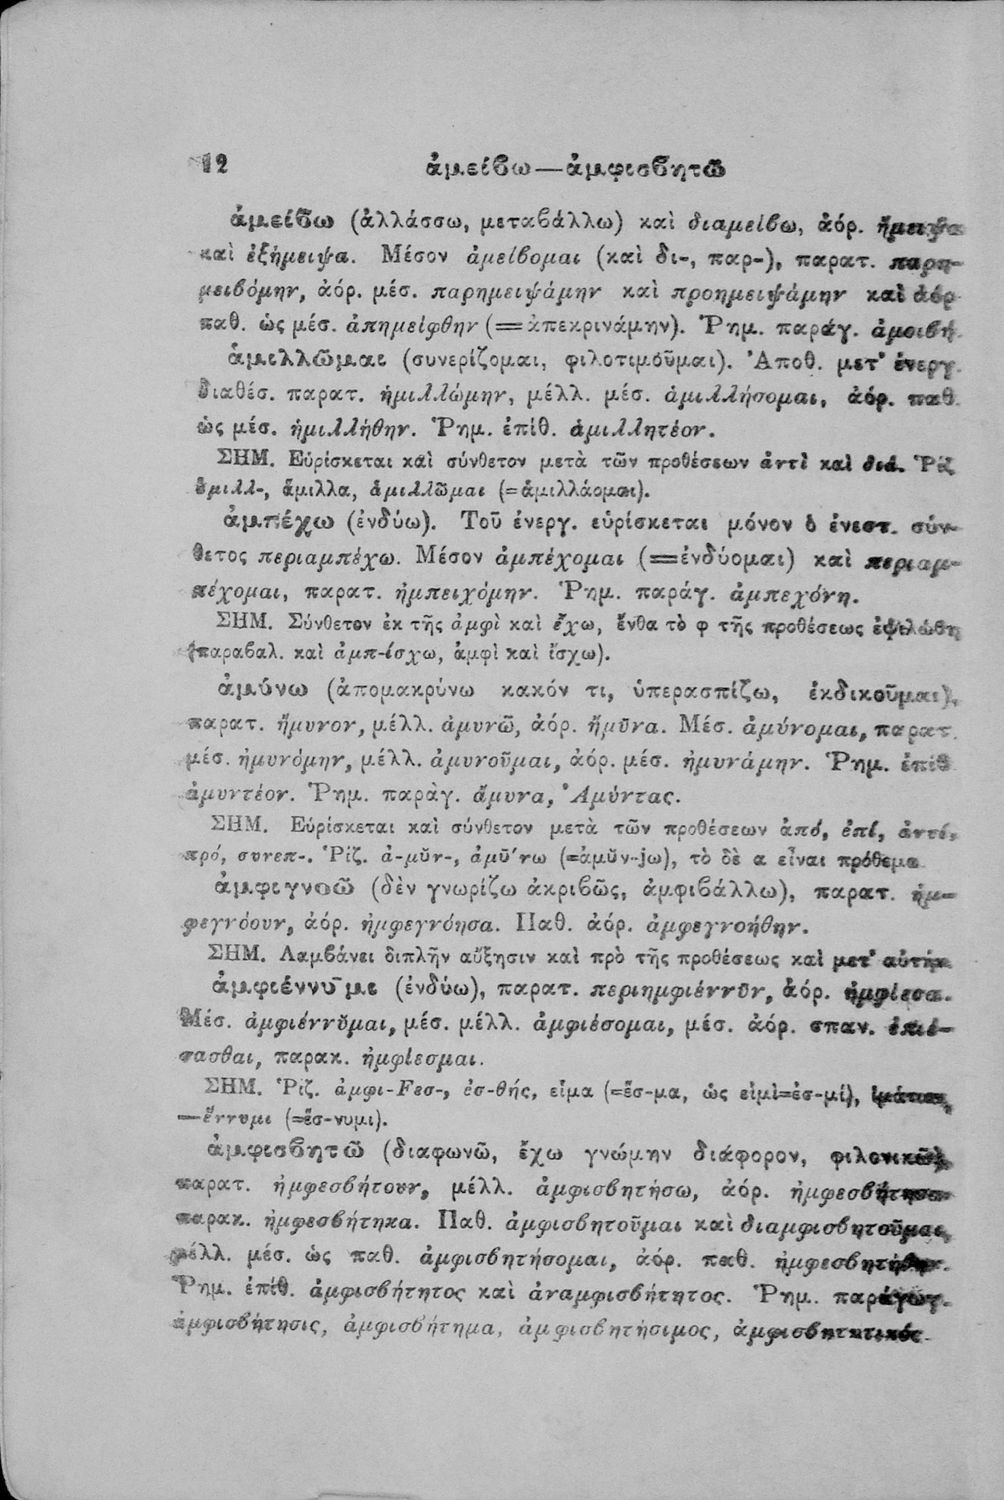 12 ἀμείβω—ἀμφισβητῶ
ἀμείβω (ἀλλάσσω, μεταβάλλω) καὶ διαμείβω, ἀόρ. ἤμειψα
καὶ ἐξήμειψα. Μέσον ἀμείβομαι (καὶ δι-, παρ-), παρατ. παρη-
μειβόμην, ἀόρ. μέσ. παρημειψάμην καὶ προημειψάμην καὶ ἀόρ
παθ. ὡς μέσ. ἀπημείφθην (=ἀπεκρινάμην). Ῥημ. παράγ. ἀμοιβή.
ἁμιλλῶμαι (συνερίζομαι, φιλοτιμοῦμαι). Ἀποθ. μετ' ἐνεργ.
διαθέσ. παρατ. ἡμιλλώμην, μέλλ. μέσ. ἁμιλλήσομαι, ἀόρ. παθ.
ὡς μέσ. ἡμιλλήθην. Ῥημ. ἐπίθ. ἁμιλλητέον.
ΣΗΜ. Εὑρίσκεται καὶ σύνθετον μετὰ τῶν προθέσεων ἀντὶ καὶ διά. Ῥίζ
ἁμιλλ-, ἅμιλλα, ἁμιλλῶμαι (=ἁμιλλάομαι).
ἀμπέχω (ἐνδύω). Τοῦ ἐνεργ. εὑρίσκεται μόνον ὁ ἐνεστ. σύν-
θετος περιαμπέχω. Μέσον ἀμπέχομαι (=ἐνδύομαι) καὶ περιαμ-
πέχομαι, παρατ. ἠμπειχόμην. Ῥημ. παράγ. ἀμπεχόνη.
ΣΗΜ. Σύνθετον ἐκ τῆς ἀμφὶ καὶ ἔχω, ἔνθα τὸ φ τῆς προθέσεως ἐψιλώθη
(παραβαλ. καὶ ἀμπ-ίσχω, ἀμφὶ καὶ ἴσχω).
ἀμύνω (ἀπομακρύνω κακόν τι, ὑπερασπίζω, ἐκδικοῦμαι),
παρατ. ἤμυνον, μέλλ. ἀμυνῶ, ἀόρ. ἤμῡνα. Μέσ. ἀμύνομαι, παρατ.
μέσ. ἠμυνόμην, μέλλ. ἀμυνοῦμαι, ἀόρ. μέσ. ἠμυνάμην. Ῥημ. ἐπίθ
ἀμυντέον. Ῥημ. παράγ. ἄμυνα, Ἀμύντας.
ΣΗΜ. Εὑρίσκεται καὶ σύνθετον μετὰ τῶν προθέσεων ἀπό, ἐπί, ἀντί,
πρό, συνεπ-. Ῥίζ. ἀ-μῠν-, ἀμῡ́νω (=ἀμῠν-jω), τὸ δὲ α εἶναι πρόθεμα
ἀμφιγνοῶ (δὲν γνωρίζω ἀκριβῶς, ἀμφιβάλλω), παρατ. ἠμ-
φεγνόουν, ἀόρ. ἠμφεγνόησα. Παθ. ἀόρ. ἀμφεγνοήθην.
ΣΗΜ. Λαμβάνει διπλῆν αὔξησιν καὶ πρὸ τῆς προθέσεως καὶ μετ' αὐτήν
ἀμφιέννῡμι (ἐνδύω), παρατ. περιημφιέννῡν, ἀόρ. ἠμφίεσα.
Μέσ. ἀμφιέννῠμαι, μέσ. μέλλ. ἀμφιέσομαι, μέσ. ἀόρ. σπαν. ἐπιέ-
σασθαι, παρακ. ἠμφίεσμαι.
ΣΗΜ. Ῥίζ. ἀμφι-Fεσ-, ἐσ-θής, εἷμα (=ἕσ-μα, ὡς εἰμὶ=ἐσ-μί), ἱμάτιον,
—ἕννυμι (=ἕσ-νυμι).
ἀμφισβητῶ (διαφωνῶ, ἔχω γνώμην διάφορον, φιλονικῶ),
παρατ. ἠμφεσβήτουν, μέλλ. ἀμφισβητήσω, ἀόρ. ἠμφεσβήτησα
παρακ. ἠμφεσβήτηκα. Παθ. ἀμφισβητοῦμαι καὶ διαμφισβητοῦμαι,
μέλλ. μέσ. ὡς παθ. ἀμφισβητήσομαι, ἀόρ. παθ. ἠμφεσβητήθην.
Ῥημ. ἐπίθ. ἀμφισβήτητος καὶ ἀναμφισβήτητος. Ῥημ. παράγωγ.
ἀμφισβήτησις, ἀμφισβήτημα, ἀμφισβητήσιμος, ἀμφισβητητικός.